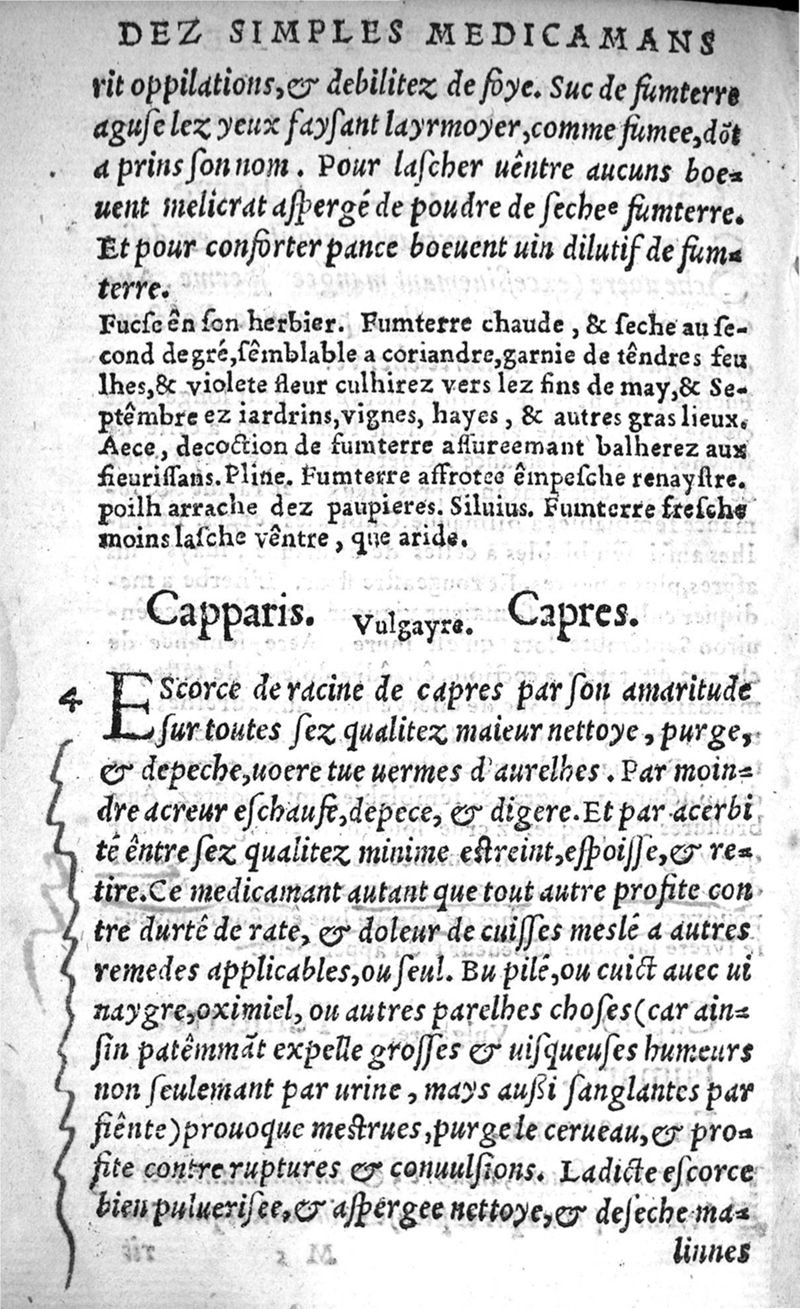 DEZ SIMPLES MEDICAMANS
rit oppilations,& debilitez de foye. Suc de fumterre
aguse lez yeux faysant layrmoyer,comme fumee,dõt
a prins son nom. Pour lascher uêntre aucuns boe-
uent melicrat aspergé de poudre de seche fumterre.
Et pour conforter pance boeuent uin dilutif de fum-
terre.
Fucse ên son herbier. Fumterre chaude, & seche au se-
cond degré,sêmblable a coriandre,garnie de têndres feu
lhes,& violete fleur culhirez vers lez fins de may,& Se-
ptêmbre ez iardrins,vignes, hayes, & autres gras lieux.
Aece, decoction de fumterre assureemant balherez aux
fieurissans. Pline. Fumterre affrotee êmpesche renaystre.
poilh arrache dez paupieres. Siluius. Fumterre fresche
moins lasche vêntre, que aride.
Capparis. Vulgayre. Capres.
4 EScorce de racine de capres par son amaritude
sur toutes sez qualitez maieur nettoye, purge,
& depeche,uoere tue uermes d'aurelhes. Par moin-
dre acreur eschaufe,depece, & digere. Et par acerbi
té êntre sez qualitez minime estreint,espoisse,& re-
tire. Ce medicamant autant que tout autre profite con
tre durtê de rate, & doleur de cuisses meslé a autres
remedes applicables,ou seul. Bu pilé,ou cuict auec ui
naygre,oximiel, ou autres parelhes choses (car ain-
sin patêmmãt expelle grosses & uisqueuses humeurs
non seulemant par urine, mays aussi sanglantes par
fiênte) prouoque mestrues,purge le cerueau,& pro-
fite contre ruptures & conuulsions. Ladicte escorce
bien puluerisee,& aspergee nettoye,& deseche ma-
linnes